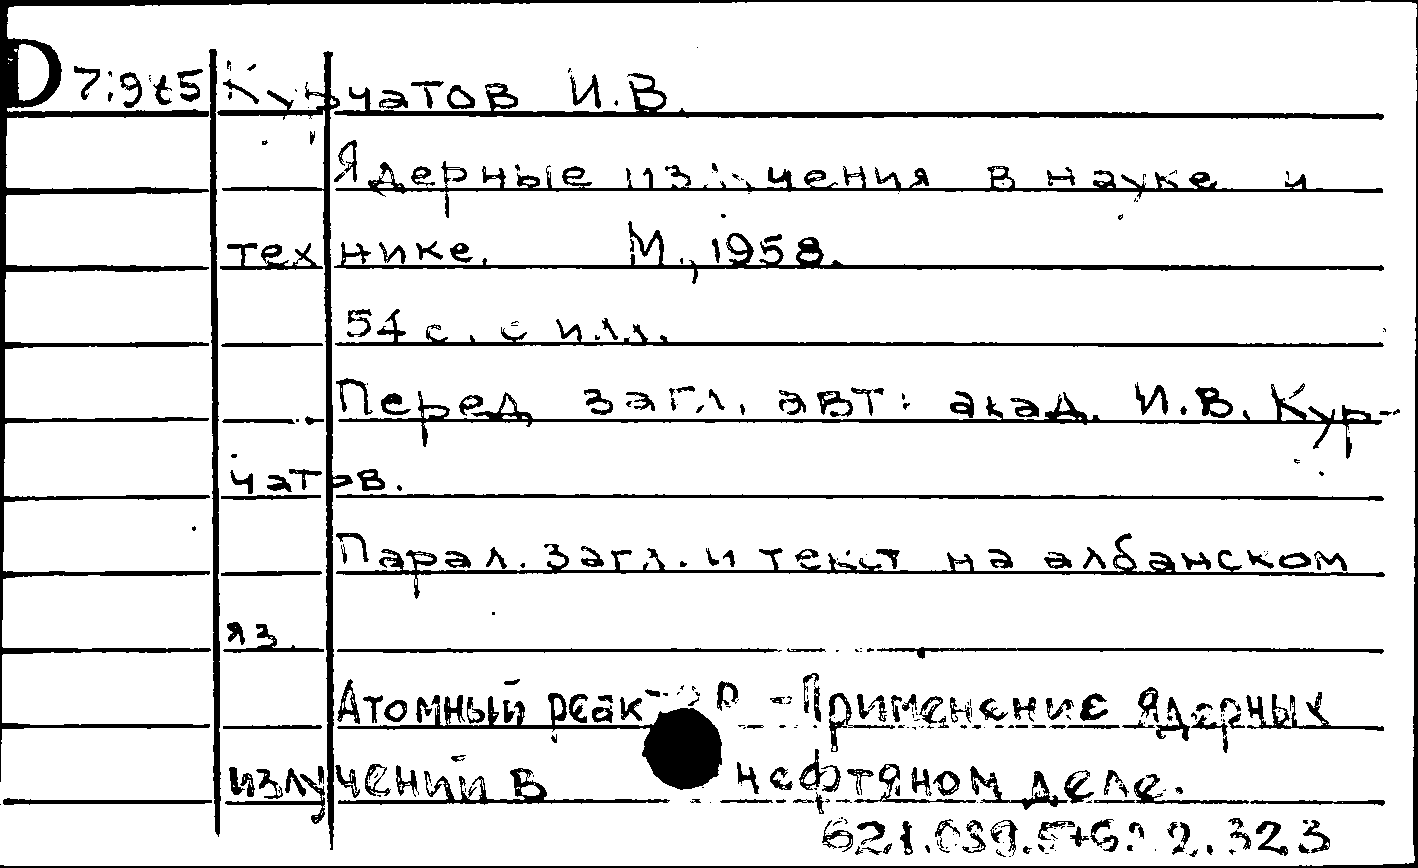 D7:9t5 Курчатов И.В.
Ядерные излучения в науке и
технике. М., 1958.
54 с. с илл.
Перед загл. авт: акад. И.В. Кур-
чатов.
Парал. загл. и текст на албанском
яз.
Атомный реактор - Применение ядерных
излучений в нефтяном деле.